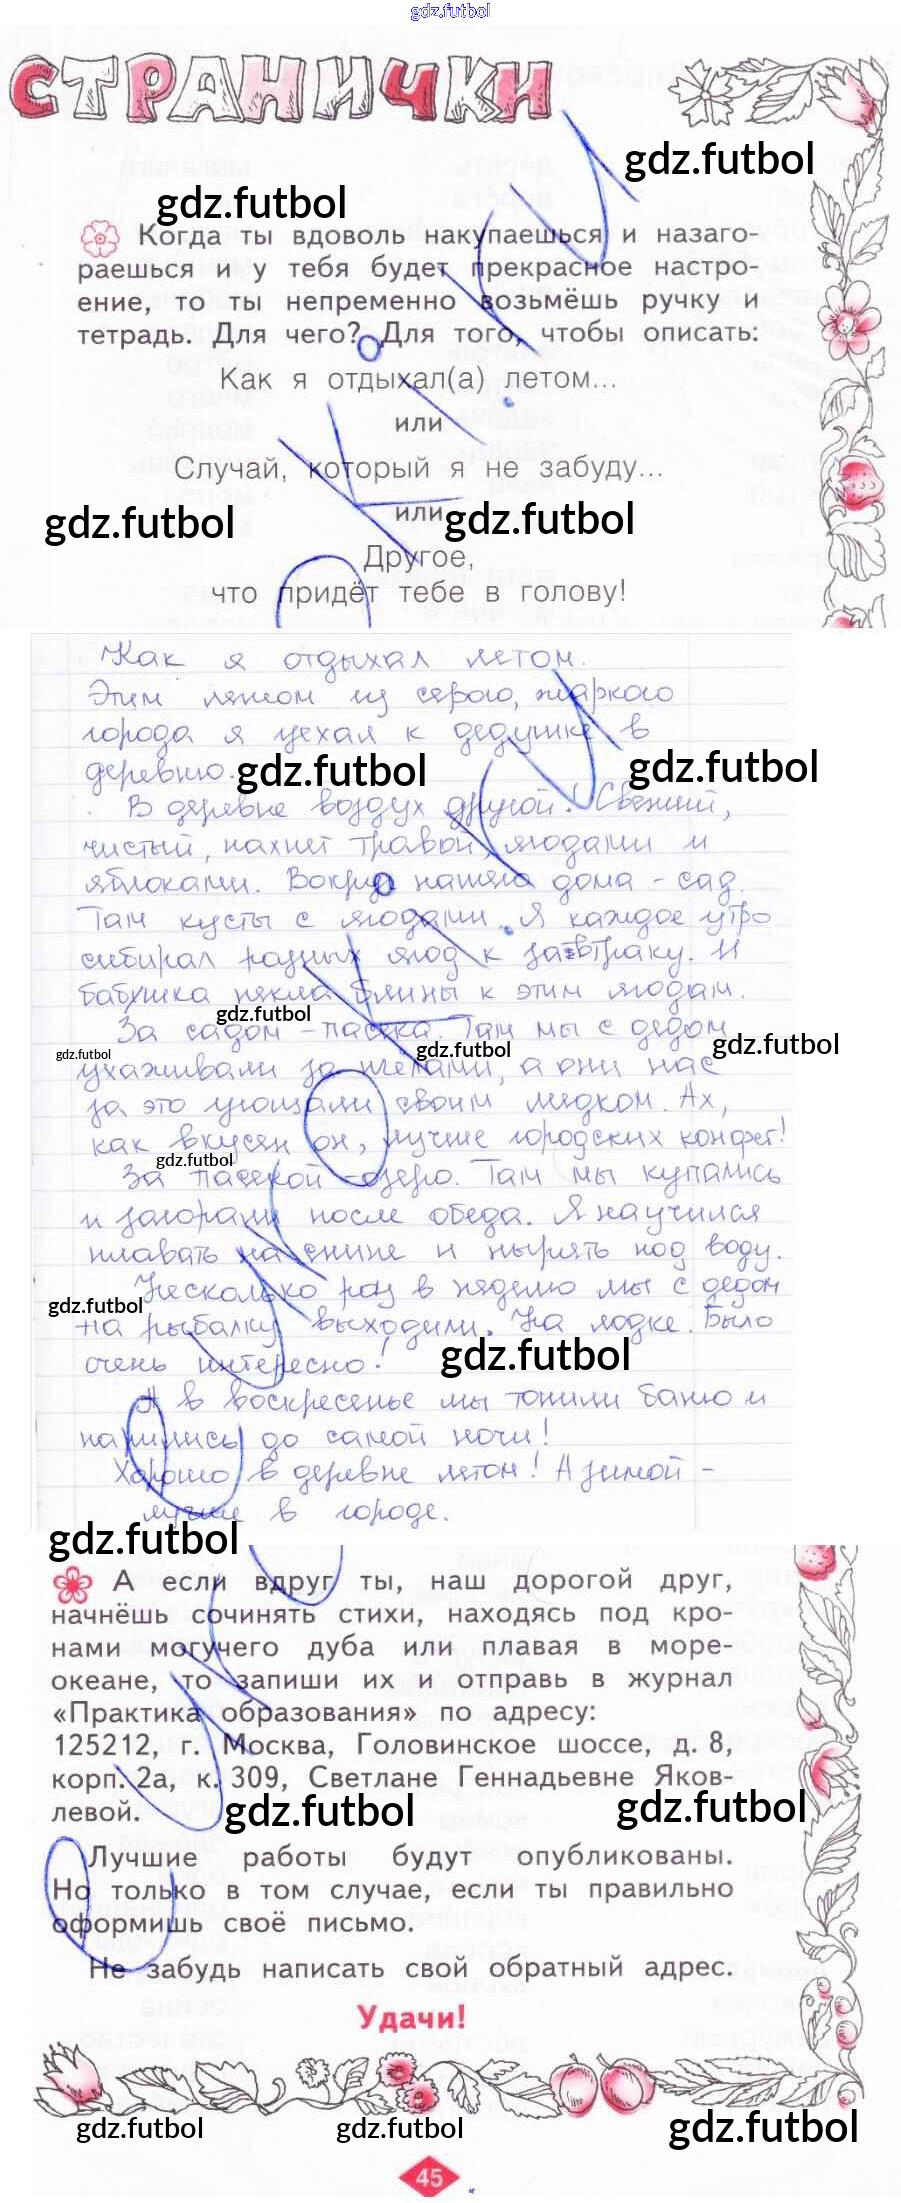 gdz.futbol
СТРАНИЧКИ
gdz.futbol
gdz.futbol
Когда ты вдоволь накупаешься и назаго-
раешься и у тебя будет прекрасное настро-
ение, то ты непременно возьмёшь ручку и
тетрадь. Для чего? Для того, чтобы описать:
Как я отдыхал(а) летом...
или
Случай, который я не забуду...
или
gdz.futbol
gdz.futbol
Другое,
что придёт тебе в голову!
Как я отдыхал летом.
Этим летом из серого, жаркого
города я уехал к дедушке в
деревню.
gdz.futbol
gdz.futbol
В деревне воздух другой! Свежий,
чистый, пахнет травой, ягодами и
яблоками. Вокруг нашего дома - сад.
Там кусты с ягодами. Я каждое утро
собирал разных ягод к завтраку. И
бабушка пекла блины к этим ягодам.
gdz.futbol
За садом - пасека. Там мы с дедом
gdz.futbol
gdz.futbol
gdz.futbol
ухаживали за пчелами, а они нас
за это угощали своим медком. Ах,
как вкусен он, лучше городских конфет!
gdz.futbol
За пасекой - озеро. Там мы купались
и загорали после обеда. Я научился
плавать на спине и нырять под воду.
Несколько раз в неделю мы с дедом
gdz.futbol
на рыбалку выходили. На лодке. Было
очень интересно!
gdz.futbol
А в воскресенье мы топили баню и
парились до самой ночи!
Хорошо в деревне летом! А зимой -
лучше в городе.
gdz.futbol
А если вдруг ты, наш дорогой друг,
начнёшь сочинять стихи, находясь под кро-
нами могучего дуба или плавая в море-
океане, то запиши их и отправь в журнал
«Практика образования» по адресу:
125212, г. Москва, Головинское шоссе, д. 8,
корп. 2а, к. 309, Светлане Геннадьевне Яков-
левой.
gdz.futbol
gdz.futbol
Лучшие работы будут опубликованы.
Но только в том случае, если ты правильно
оформишь своё письмо.
Не забудь написать свой обратный адрес.
Удачи!
gdz.futbol
gdz.futbol
gdz.futbol
45